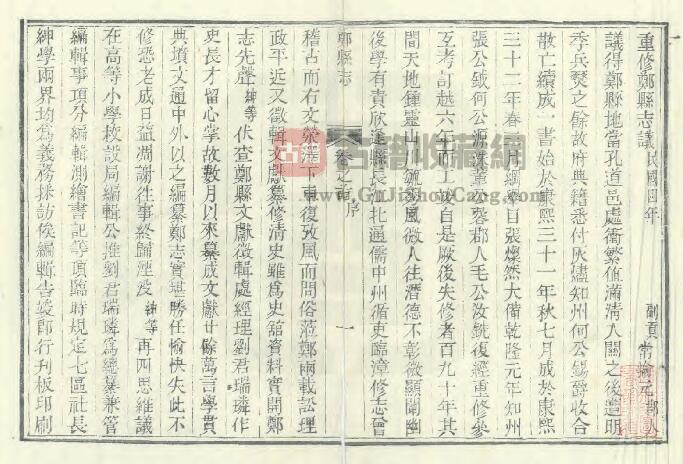 重修鄭縣志議 民國四年 副貢 常瑜元 鄭縣
議得鄭縣地當孔道邑處衝繁值滿清入關之後遭明
季兵燹之餘故府典籍悉付灰燼知州何公錫爵收合
散亡續成一書始於康熙三十一年秋七月成於康熙
三十二年春 月綱舉目張燦然大備乾隆元年知州
張公鉞何公源洙董公榕郡人毛公汝銑復經重修參
互考訂越六年而工竣自是厥後失修者百九十年其
間天地鍾靈山川毓秀風微人往潛德不彰微顯闡幽
後學有責欣逢縣長 北通儒中州循吏臨漳修志會
鄭縣志 卷之首 序 一
稽古而右文滎澤下車復攷風而問俗蒞鄭兩載訟理
政平近又徵輯文獻纂修清史雖為史舘資料實開鄭
志先聲紳等伏查鄭縣文獻徵輯處經理劉君瑞璘作
史長才留心掌故數月以來纂成文獻廿餘萬言學貫
典墳文通中外以之編纂鄭志實堪勝任愉快失此不
修恐老成日益凋謝往事終歸湮沒紳等再四思維議
在高等小學校設局編輯公推劉君瑞璘為總纂兼管
編輯事項分編輯測繪書記等項臨時規定七區社長
紳學兩界均為義務採訪俟編輯告竣即行刋板印刷
古籍收藏網
www.GuJiShouCang.com